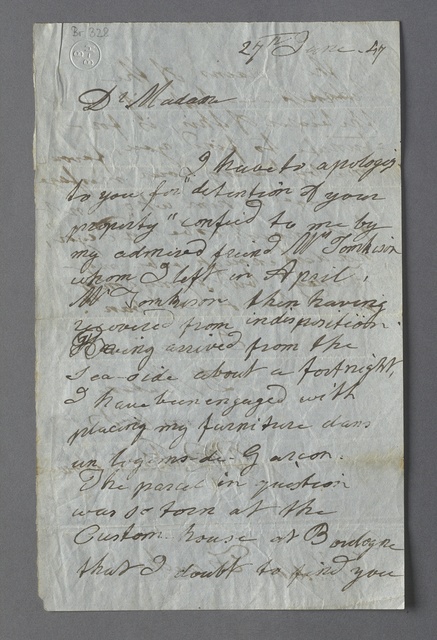 Br 328
27th June 47
Dr. Madam
I have to apologiz
to you for "detention of your
property" confied to me by
my admired friend Mrs Tomkison
whom I left in April,
Mr Tomkison then having
recovered from indisposition.
Having arrived from the
Sea-side about a fortnight,
I have been engaged with
placing my furniture dans
un logems de Garcon.
The parcel in question
was so torn at the
Custom house at Boulogne
that I doubt to find you